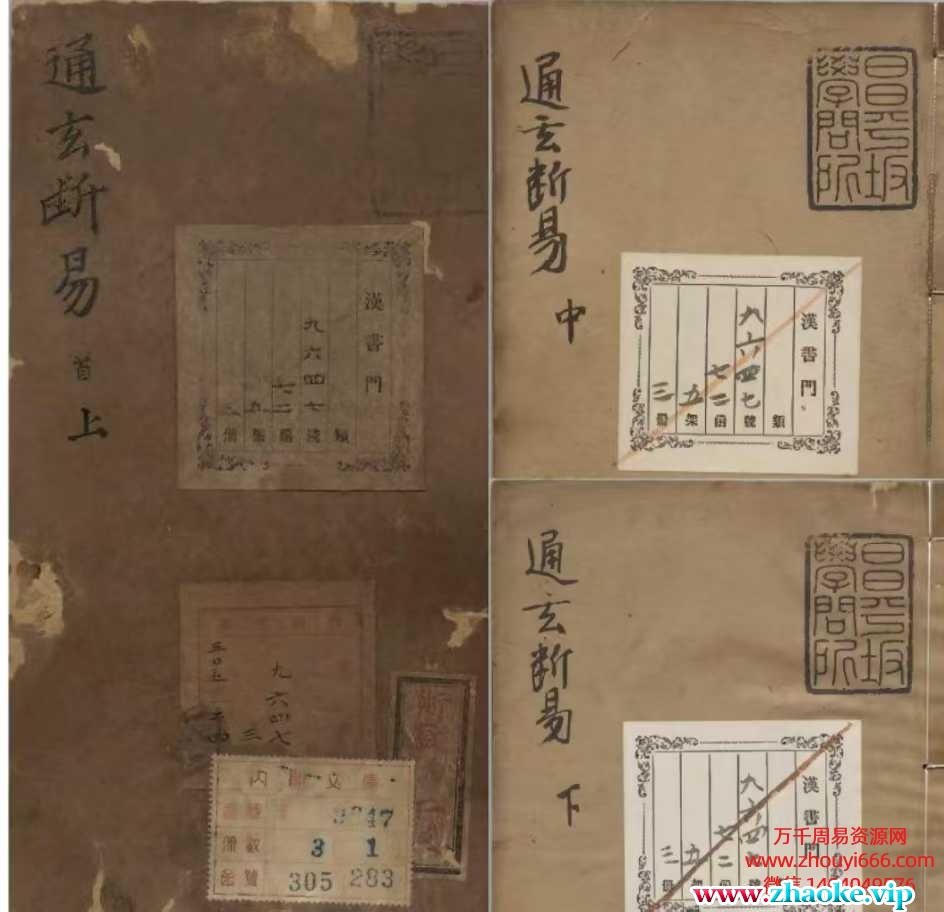 通玄断易
首
上
漢書門
類
九六四七號
七二函
五架
三冊
九六四七
三
五〇五
内閣文庫
番號
漢
9647
冊數
3
1
函號
305
283
通玄断易
中
昌平坂
學問所
漢書門
類
九六四七號
七二函
五架
三冊
通玄断易
下
昌平坂
學問所
漢書門
九六四七
七二
五
三冊
万千周易资源网
www.zhouyi666.com
www.zhaoke.vip